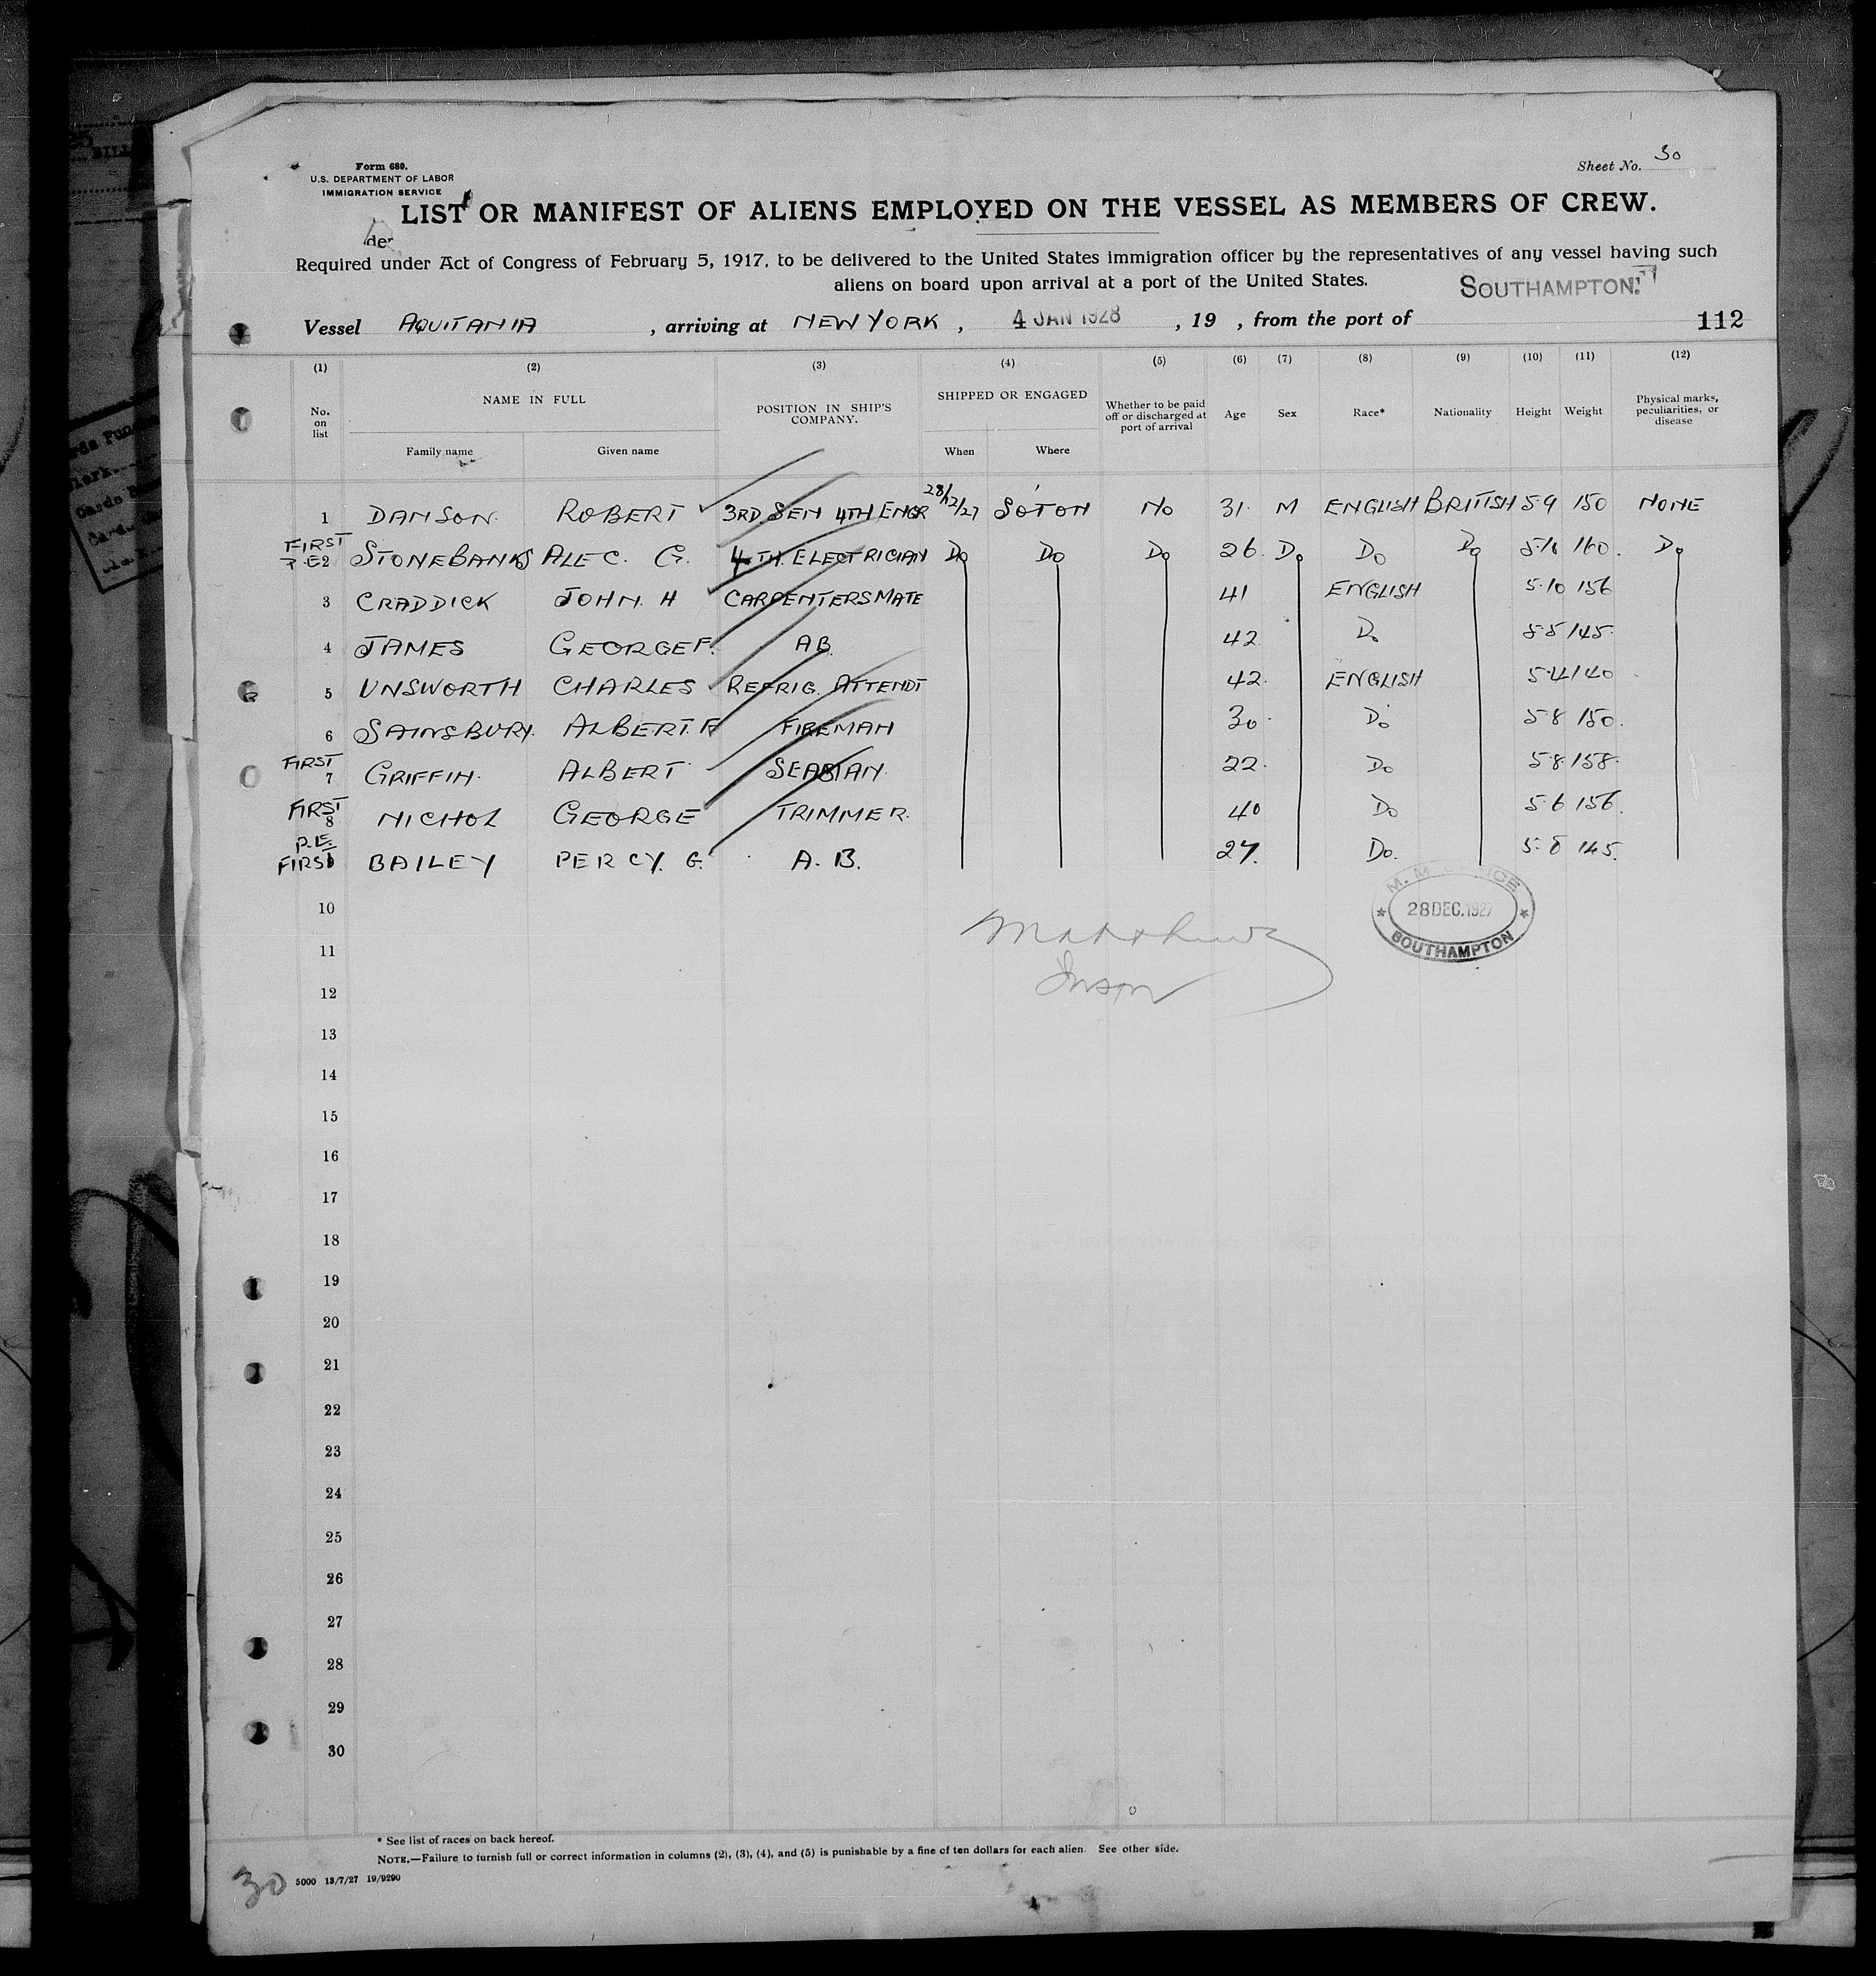 Form 680.
U.S. DEPARTMENT OF LABOR
IMMIGRATION SERVICE
Sheet No. 30
LIST OR MANIFEST OF ALIENS EMPLOYED ON THE VESSEL AS MEMBERS OF CREW.
der
Required under Act of Congress of February 5, 1917, to be delivered to the United States immigration officer by the representatives of any vessel having such
aliens on board upon arrival at a port of the United States.
SOUTHAMPTON
Vessel AQUITANIA, arriving at NEW YORK, 4 JAN 1928, 19 , from the port of
112
(1) (2) (3) (4) (5) (6) (7) (8) (9) (10) (11) (12)
No. on list
NAME IN FULL
Family name Given name
POSITION IN SHIP'S COMPANY.
SHIPPED OR ENGAGED
When Where
Whether to be paid off or discharged at port of arrival
Age Sex Race* Nationality Height Weight
Physical marks, peculiarities, or disease
1 DANSON. ROBERT 3RD SEN 4TH ENGR 28/12/27 SOTON NO 31 M ENGLISH BRITISH 5.9 150 NONE
FIRST
2 STONEBANKS ALEC. G. 4TH ELECTRICIAN Do Do Do 26. Do Do Do 5.10 160. Do
3 CRADDICK JOHN. H CARPENTERS MATE 41 ENGLISH 5.10 156
4 JAMES GEORGE F. AB. 42 Do 5.5 145.
5 UNSWORTH CHARLES REFRIG. ATTENDT 42. ENGLISH 5.4 140
6 SAINSBURY. ALBERT. F FIREMAN 30. Do 5.8 150.
FIRST
7 GRIFFIN. ALBERT SEAMAN. 22. Do 5.8. 158.
FIRST
8 NICHOL GEORGE TRIMMER. 40 Do 5.6 156.
P.E.
FIRST BAILEY PERCY. G. A.B. 27. Do. 5.8 145.
10
M. M. OFFICE
28 DEC. 1927
SOUTHAMPTON
11
12
13
14
15
16
17
18
19
20
21
22
23
24
25
26
27
28
29
30
* See list of races on back hereof.
NOTE.—Failure to furnish full or correct information in columns (2), (3), (4), and (5) is punishable by a fine of ten dollars for each alien. See other side.
30
5000 13/7/27 19/9290